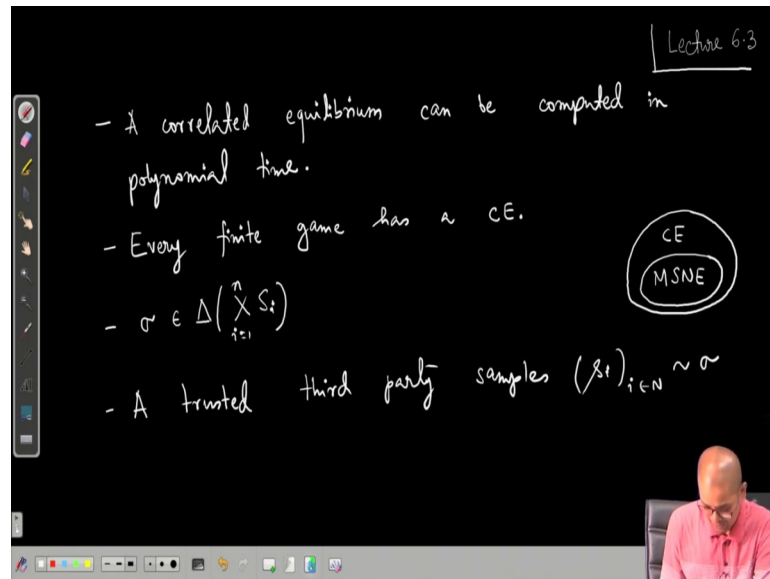 Lecture 6.3
- A correlated equilibrium can be computed in
polynomial time.
- Every finite game has a CE.
CE
MSNE
- σ ∈ Δ(
n
×
i=1
S_i)
- A trusted third party samples (s_i)_{i∈N} ~ σ